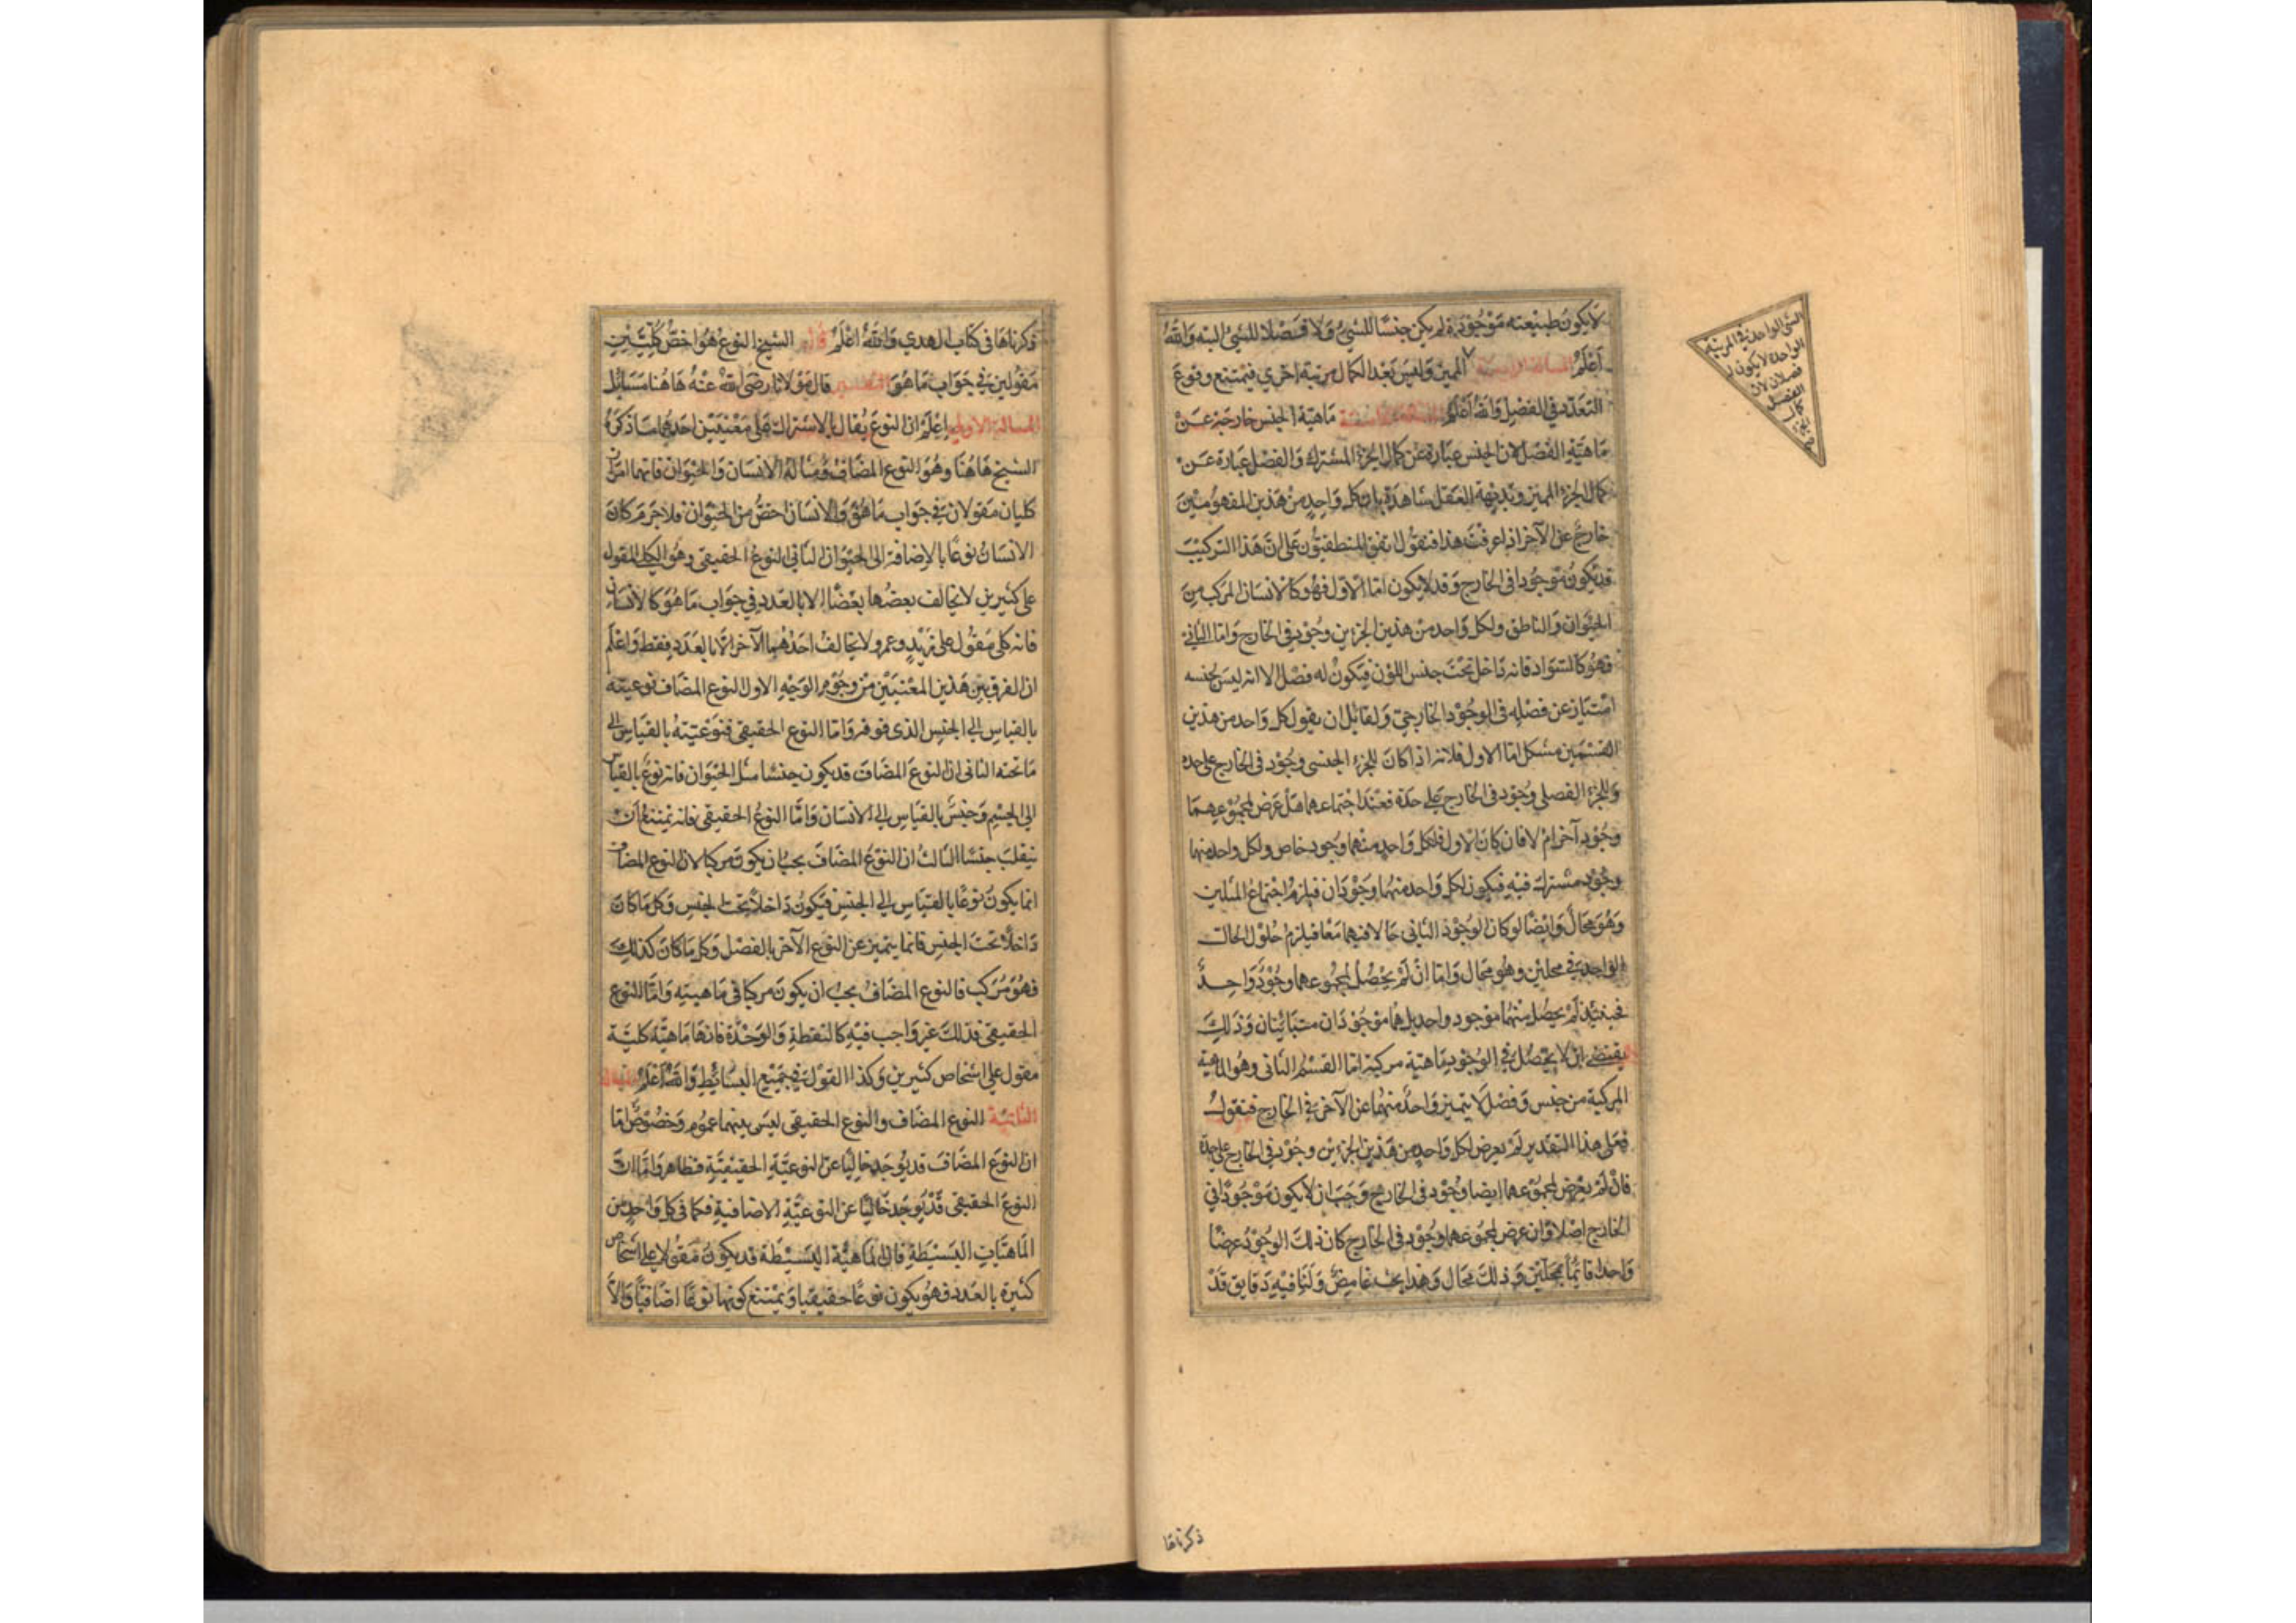 لا يكون طبيعته موجودة لم يكن جنسا للشئ ولا فصلا للشئ البته والله
اعلم المسألة المميز وليس بعد الكمال مرتبة اخرى فيمتنع وقوع
التعدد في الفصل والله اعلم ماهية الجنس خارجة عن
ماهية الفصل لان الجنس عبارة عن كمال الجزء المشترك والفصل عبارة عن
كمال الجزء المميز وبديهة العقل شاهدة بان كل واحد من هذين المفهومين
خارج عن الآخر اذا عرفت هذا فنقول اتفق المنطقيون على ان هذا التركيب
قد يكون موجودا في الخارج وقد لا يكون اما الاول فهو كالانسان المركب من
الحيوان والناطق ولكل واحد من هذين الجزءين وجود في الخارج واما الثاني
فهو كالسواد فانه داخل تحت جنس اللون فيكون له فصل الا انه ليس لجنسه
امتياز عن فصله في الوجود الخارجي ولقائل ان يقول كل واحد من هذين
القسمين مشكل اما الاول فلانه اذا كان للجزء الجنسى وجود في الخارج على حده
وللجزء الفصلى وجود في الخارج على حدة فعند اجتماعهما هل عرض لمجموعهما
وجود آخر ام لا فان كان الاول فلكل واحد منهما وجود خاص ولكل واحد منهما
وجود مشترك فيه فيكون لكل واحد منهما وجودان فيلزم اجتماع المثلين
وهو محال وايضا لو كان الوجود الثاني حالا فيهما معا فيلزم حلول الحال
الواحد في محلين وهو محال واما ان لم يحصل لمجموعهما وجود واحد
فحينئذ لم يحصل منهما موجود واحد بل هما موجودان متباينان وذلك
يقتضى ان لا يحصل في الوجود ماهية مركبة اما القسم الثاني وهو الماهية
المركبة من جنس وفصل لا يتميز واحد منهما عن الآخر في الخارج فنقول
فعلى هذا التقدير لم يعرض لكل واحد من هذين الجزءين وجود في الخارج على حدة
فان لم يعرض لمجموعهما ايضا وجود في الخارج وجب ان لا يكون موجودا في
الخارج اصلا وان عرض لمجموعهما وجود في الخارج كان ذلك الوجود عرضا
واحدا قائما بمحلين وذلك محال وهذا بحث غامض ولنا فيه دقايق قد
الشئ الواحد في المرتبة
الواحدة لا يكون له
فصلان لان
الفصل
كمال
ذكرناها
ذكرناها في كتاب الهدي والله اعلم قال الشيخ النوع هو اخص كليين
مقولين في جواب ما هو التفسير قال مولانا رضى الله عنه هاهنا مسائل
المسألة الاولى اعلم ان النوع يقال بالاشتراك على معنيين احدهما ما ذكره
الشيخ هاهنا وهو النوع المضاف ومثاله الانسان والحيوان فانهما امران
كليان مقولان في جواب ما هو والانسان اخص من الحيوان فلا جرم كان
الانسان نوعا بالاضافة الى الحيوان الثاني النوع الحقيقى وهو الكلى المقول
على كثيرين لا يخالف بعضها بعضا الا بالعدد في جواب ما هو كالانسان
فانه كلى مقول على زيد وعمرو ولا يخالف احدهما الآخر الا بالعدد فقط واعلم
ان الفرق بين هذين المعنيين من وجوه الوجه الاول النوع المضاف نوعيته
بالقياس الى الجنس الذى فوقه واما النوع الحقيقى فنوعيته بالقياس الى
ما تحته الثاني ان النوع المضاف قد يكون جنسا مثل الحيوان فانه نوع بالقياس
الى الجسم وجنس بالقياس الى الانسان واما النوع الحقيقى فانه يمتنع ان
ينقلب جنسا الثالث ان النوع المضاف يجب ان يكون مركبا لان النوع المضاف
انما يكون نوعا بالقياس الى الجنس فيكون داخلا تحت الجنس وكل ما كان
داخلا تحت الجنس فانما يتميز عن النوع الآخر بالفصل وكل ما كان كذلك
فهو مركب فالنوع المضاف يجب ان يكون مركبا في ماهيته واما النوع
الحقيقى فذلك غير واجب فيه كالنقطة والوحدة فانها ماهية كلية
مقول على اشخاص كثيرين وكذا القول في جميع البسائط والله اعلم المسألة
الثانية النوع المضاف والنوع الحقيقى ليس بينهما عموم وخصوص اما
ان النوع المضاف قد يوجد خاليا عن النوعية الحقيقية فظاهر واما ان
النوع الحقيقى قد يوجد خاليا عن النوعية الاضافية فكما في كل واحد من
الماهيات البسيطة فان الماهية البسيطة قد يكون مقولا على اشخاص
كثيرة بالعدد فهو يكون نوعا حقيقيا ويمتنع كونها نوعا اضافيا والا